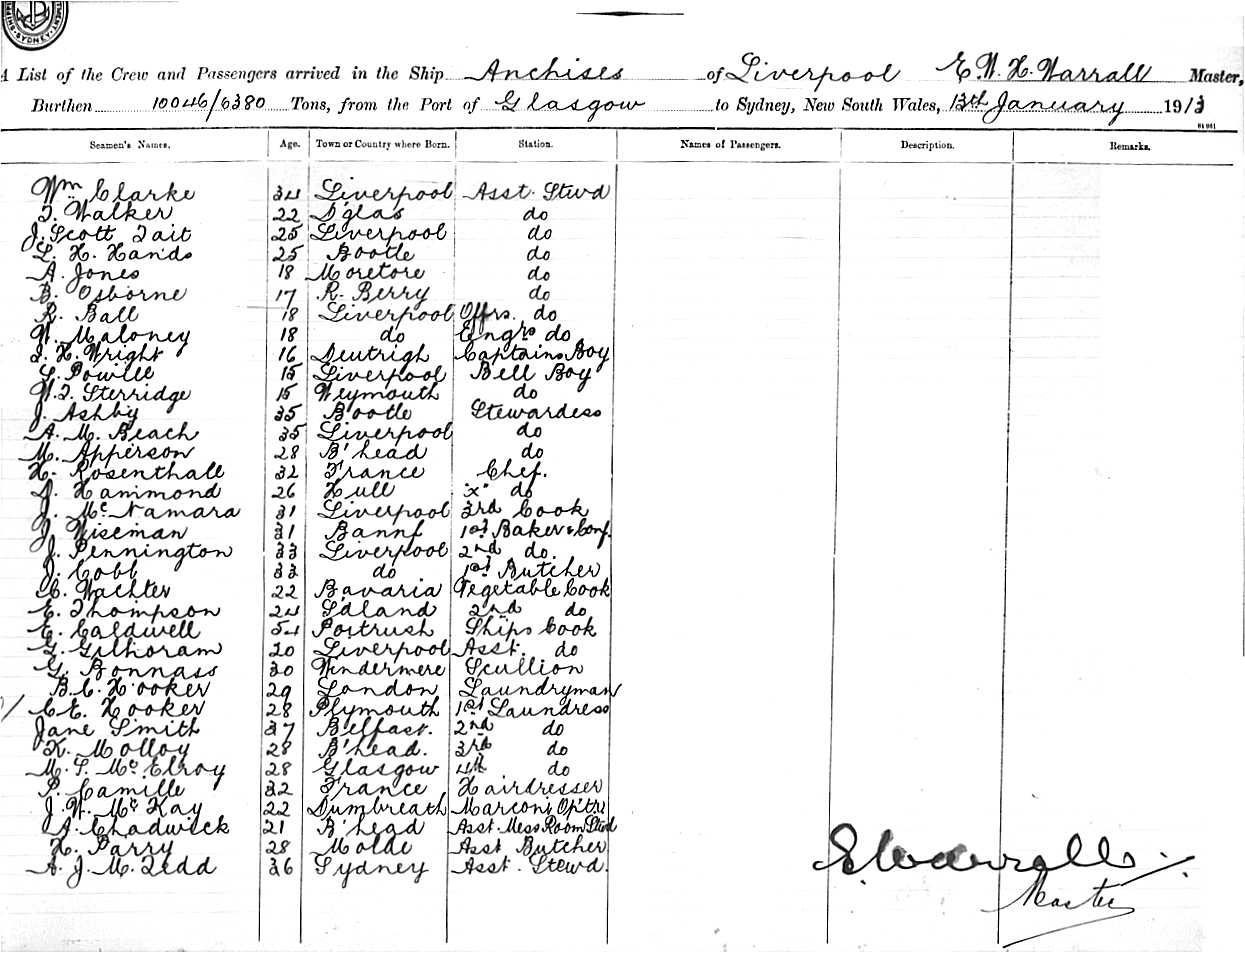 SYDNEY
A List of the Crew and Passengers arrived in the Ship Anchises of Liverpool E. W. H. Warrall Master,
Burthen 10046/6380 Tons, from the Port of Glasgow to Sydney, New South Wales, 13th January 1913
Seamen's Names. Age. Town or Country where Born. Station. Names of Passengers. Description. Remarks.
Wm Clarke 34 Liverpool Asst. Stwd
T. Walker 22 D'glas do
J. Scott Tait 25 Liverpool do
L. H. Hands 25 Bootle do
A. Jones 18 Moretore do
B. Osborne 17 R. Berry do
R. Ball 18 Liverpool Offrs. do
W. Maloney 18 do Engrs do
J. H. Wright 16 Captains Boy
L. Powill 15 Liverpool Bell Boy
W. T. Sterridge 15 Weymouth do
J. Ashby 35 Bootle Stewardess
A. M. Beach 35 Liverpool do
M. Apperson 28 B'head do
H. Rosenthall 32 France Chef.
A. Hammond 26 Hull "x" do
J. McNamara 31 Liverpool 3rd Cook
J. Wiseman 31 Bannf 1st Baker & Conf.
J. Pennington 33 Liverpool 2nd do.
J. Cobb 33 do 1st Butcher
C. Wachter 22 Bavaria Vegetable Cook
E. Thompson 24 S'dland 2nd do
E. Caldwell 54 Portrush Ships Cook
G. Gilhoram 20 Liverpool Asst. do
G. Bonnass 30 Windermere Scullion
B. C. Hooker 29 London Laundryman
C. E. Hooker 28 Plymouth 1st Laundress
Jane Smith 37 Belfast. 2nd do
K. Molloy 28 B'head. 3rd do
M. S. McElroy 28 Glasgow 4th do
P. Camille 32 France Hairdresser
J. W. McKay 22 Dumbreath Marconi Op'tr
A. Chadwick 21 B'head Asst. Mess Room Stwd
H. Parry 28 Molde Asst Butcher
A. J. M. Tedd 36 Sydney Asst. Stewd.
E. Warrall
Master